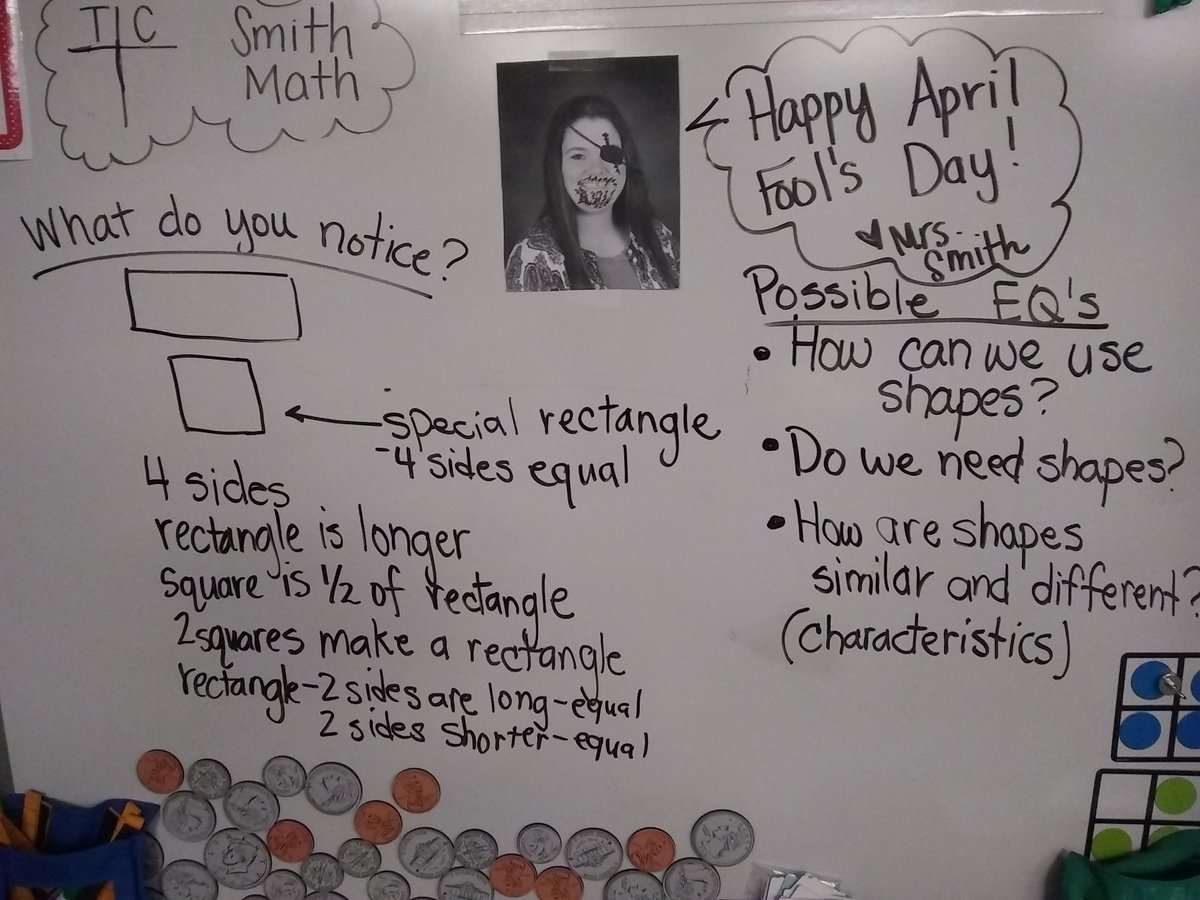 T C
Smith
Math
Happy April
Fool's Day!
Mrs.
Smith
What do you notice?
special rectangle
-4 sides equal
4 sides
rectangle is longer
square is 1/2 of rectangle
2 squares make a rectangle
rectangle-2 sides are long-equal
2 sides shorter-equal
Possible EQ's
• How can we use
shapes?
• Do we need shapes?
• How are shapes
similar and different?
(characteristics)